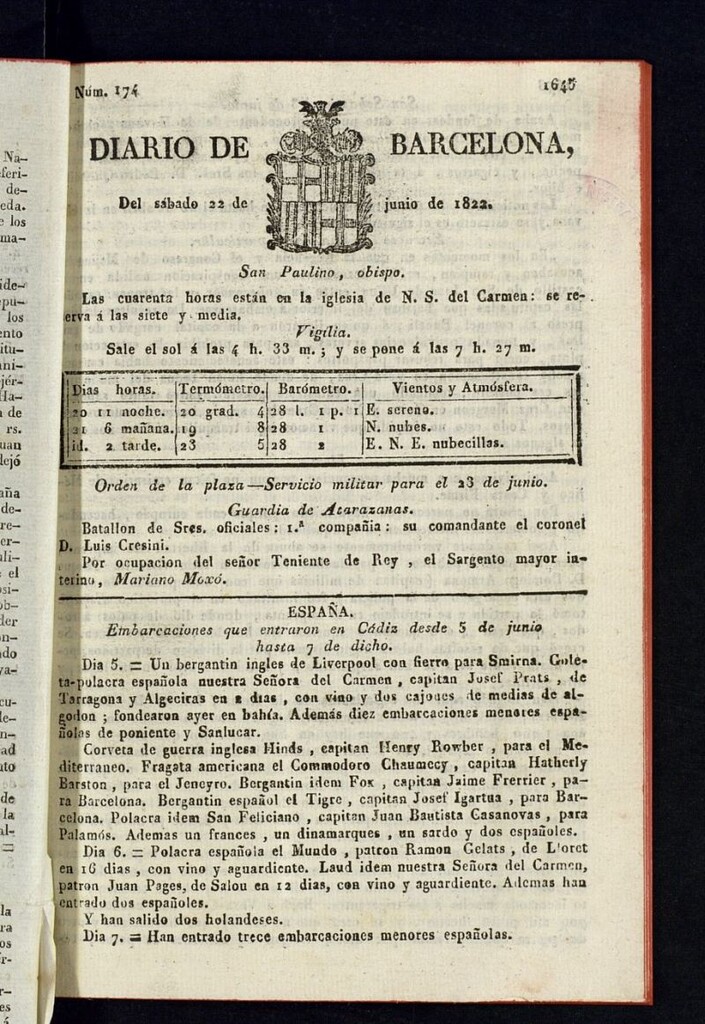 Núm. 174
1645
DIARIO DE BARCELONA,
Del sábado 22 de junio de 1822.
San Paulino, obispo.
Las cuarenta horas están en la iglesia de N. S. del Carmen: se re-
erva á las siete y media.
Vigilia.
Sale el sol á las 4 h. 33 m.; y se pone á las 7 h. 27 m.
Dias horas. Termómetro. Barómetro. Vientos y Atmósfera.
20 11 noche. 20 grad. 4 28 l. 1 p. 1 E. sereno.
21 6 mañana. 19 8 28 1 N. nubes.
id. 2 tarde. 23 5 28 2 E. N. E. nubecillas.
Orden de la plaza—Servicio militar para el 23 de junio.
Guardia de Atarazanas.
Batallon de Sres. oficiales: 1.ª compañia: su comandante el coronel
D. Luis Cresini.
Por ocupacion del señor Teniente de Rey, el Sargento mayor in-
terino, Mariano Moxó.
ESPAÑA.
Embarcaciones que entraron en Cádiz desde 5 de junio
hasta 7 de dicho.
Dia 5. = Un bergantin ingles de Liverpool con fierro para Smirna. Gole-
ta-polacra española nuestra Señora del Carmen, capitan Josef Prats, de
Tarragona y Algeciras en 2 dias, con vino y dos cajones de medias de al-
godon; fondearon ayer en bahía. Además diez embarcaciones menores espa-
ñolas de poniente y Sanlucar.
Corveta de guerra inglesa Hinds, capitan Henry Rowber, para el Me-
diterraneo. Fragata americana el Commodoro Chaumecy, capitan Hatherly
Barston, para el Jeneyro. Bergantin idem Fox, capitan Jaime Frerrier, pa-
ra Barcelona. Bergantin español el Tigre, capitan Josef Igartua, para Bar-
celona. Polacra idem San Feliciano, capitan Juan Bautista Casanovas, para
Palamós. Ademas un frances, un dinamarques, un sardo y dos españoles.
Dia 6. = Polacra española el Mundo, patron Ramon Gelats, de Lloret
en 16 dias, con vino y aguardiente. Laud idem nuestra Señora del Carmen,
patron Juan Pages, de Salou en 12 dias, con vino y aguardiente. Ademas han
entrado dos españoles.
Y han salido dos holandeses.
Dia 7. = Han entrado trece embarcaciones menores españolas.